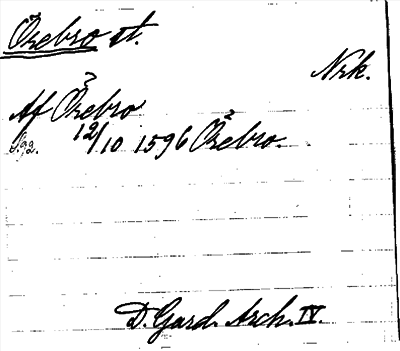 Örebro st.
Nrk.
Af Örebro
12/10 1596 Örebro.
D. Gard. Arch. IV.